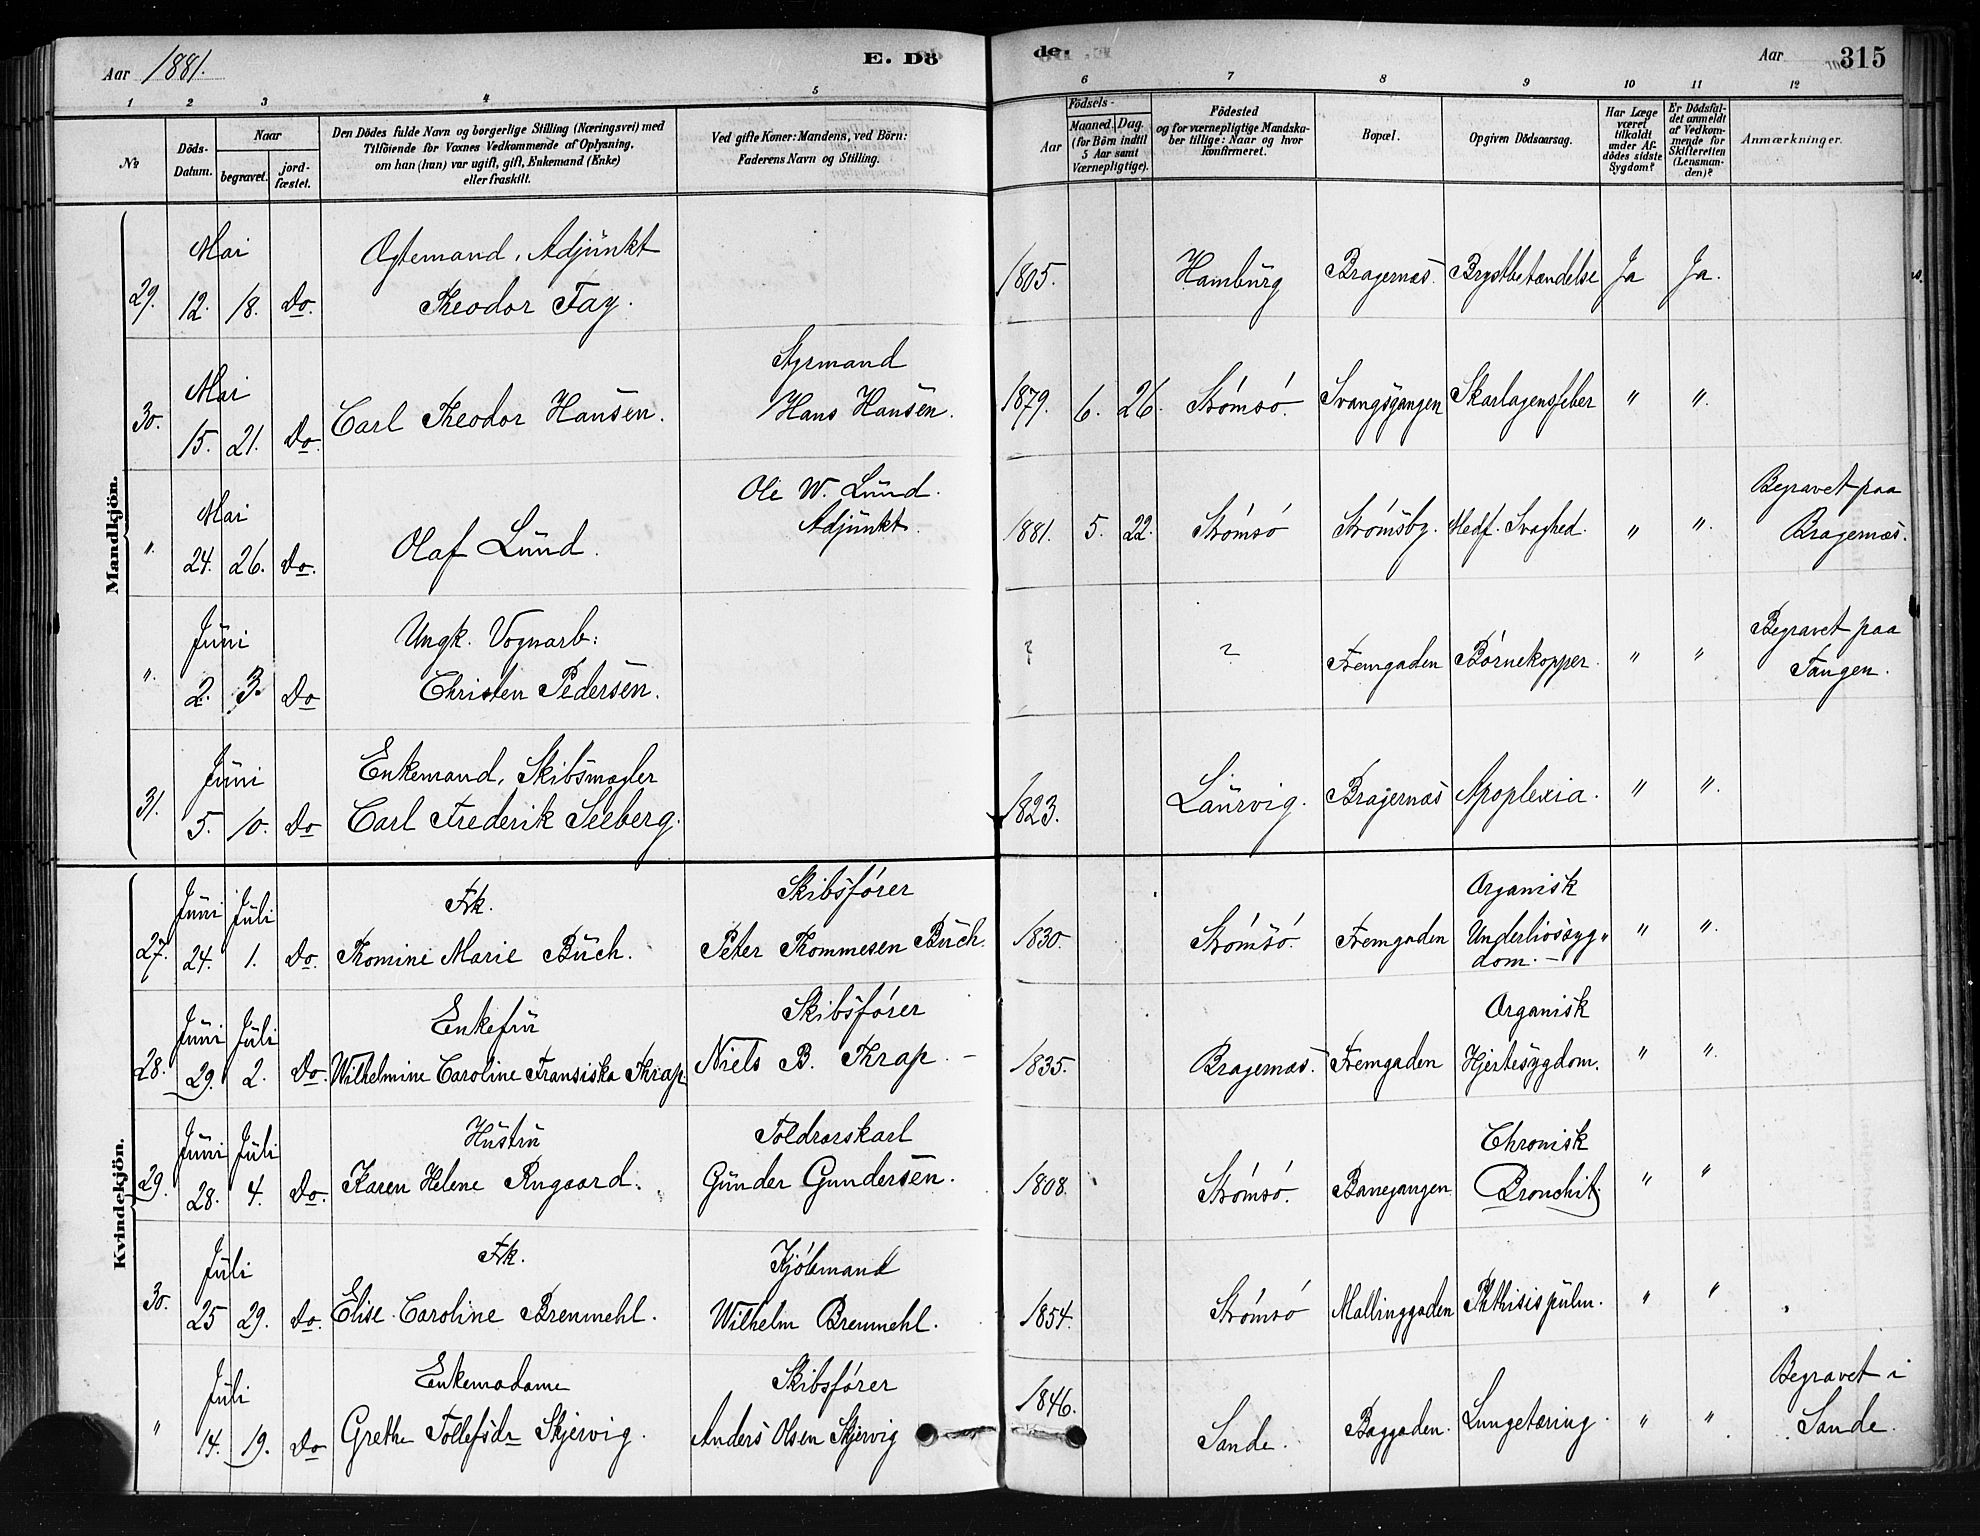 Aar 1881.
E. Dö
de.
Aar 315
1 2 3 4 5 6 7 8 9 10 11 12
No
Döds-Datum.
Naar
begravet.
jord-fæstet.
Den Dödes fulde Navn og borgerlige Stilling (Næringsvei) med
Tilföiende for Voxnes Vedkommende af Oplysning,
om han (hun) var ugift, gift, Enkemand (Enke)
eller fraskilt.
Ved gifte Koner: Mandens, ved Börn:
Faderens Navn og Stilling.
Födsels-
Aar
Maaned. Dag.
(for Börn indtil
5 Aar samt
Værnepligtige).
Födested
og for værnepligtige Mandska-
ber tillige: Naar og hvor
konfirmeret.
Bopæl.
Opgiven Dödsaarsag.
Har Læge
været
tilkaldt
under Af-
dödes sidste
Sygdom?
Er Dödsfal-
det anmeldt
af Vedkom-
mende for
Skifteretten
(Lensman-
den)?
Anmærkninger.
Mandkjön.
Mai Ægtemand, Adjunkt
29. 12. 18. Do. Theodor Fay. 1805. Hamburg Bragernæs. Brystbetændelse Ja Ja.
Mai Styrmand
30. 15. 21. Do. Carl Theodor Hansen. Hans Hansen. 1879. 6. 26. Strömsö. Svangsgangen Skarlagensfeber " ".
Mai Ole W. Lund. Begravet paa
". 24. 26. Do. Olaf Lund. Adjunkt. 1881. 5. 22. Strömsö Strömsby. Medf. Svaghed. " ". Bragernæs.
Juni Ungk. Vognarb: Begravet paa
". 2. 3. Do Christen Pedersen. ? ? Fremgaden Börnekopper. " " Tangen.
Juni Enkemand, Skibsmægler
31. 5. 10. Do Carl Frederik Seeberg. 1823. Laurvig. Bragernæs Apoplexia. " ".
Kvindekjön.
Juni Juli Frk. Skibsförer Organisk
27. 24. 1. Do. Thomine Marie Buch. Peter Thommesen Buch. 1830. Strömsö. Fremgaden Underlivssyg-
dom. " ".
Juni Juli Enkefru Skibsförer Organisk
28. 29. 2. Do. Wilhelmine Caroline Fransiska Thrap Niels B. Thrap. 1835. Bragernæs. Fremgaden Hjertesygdom. " ".
Juni Juli Hustru Toldrorskarl Chronisk
29. 28. 4. Do. Karen Helene Rugaard. Gunder Gundersen. 1808. Strömsö. Banegangen Bronchit. " "
Juli Frk. Kjöbmand
30. 25 29. Do. Elise Caroline Bremmehl. Wilhelm Bremmehl. 1854. Strömsö Mallinggaden Phthisis pulm. " "
Juli Enkemadame Skibsförer Begravet i
" 14. 19. Do Grethe Tollefsdr Skjervig. Anders Olsen Skjervig 1846. Sande. Baggaden. Lungetæring. " " Sande.